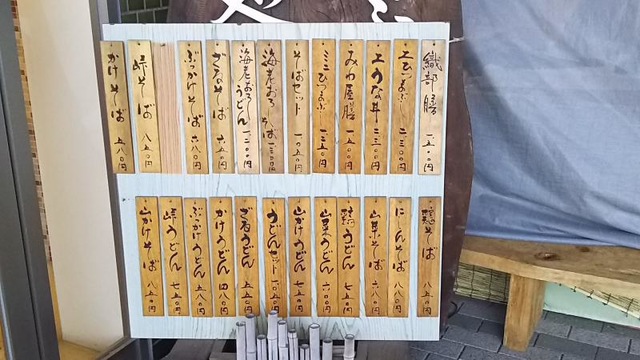 織部膳 一五〇〇円
上ひつまぶし 二三〇〇円
上うな丼 二三〇〇円
みわ屋膳 一五〇〇円
ミニひつまぶし 一三五〇円
そばセット 一〇五〇円
海老おろしそば 一三〇〇円
海老おろしうどん 一二〇〇円
ざるそば 六五〇円
ぶっかけそば 六八〇円
峠そば 八五〇円
かけそば 五八〇円
鶏そば 八五〇円
にしんそば 八八〇円
山菜そば 六八〇円
鶏うどん 七五〇円
山菜うどん 六〇〇円
山かけうどん 七五〇円
うどんセット 一〇五〇円
ざるうどん 五五〇円
かけうどん 四八〇円
ぶっかけうどん 五八〇円
峠うどん 七五〇円
山かけそば 八五〇円